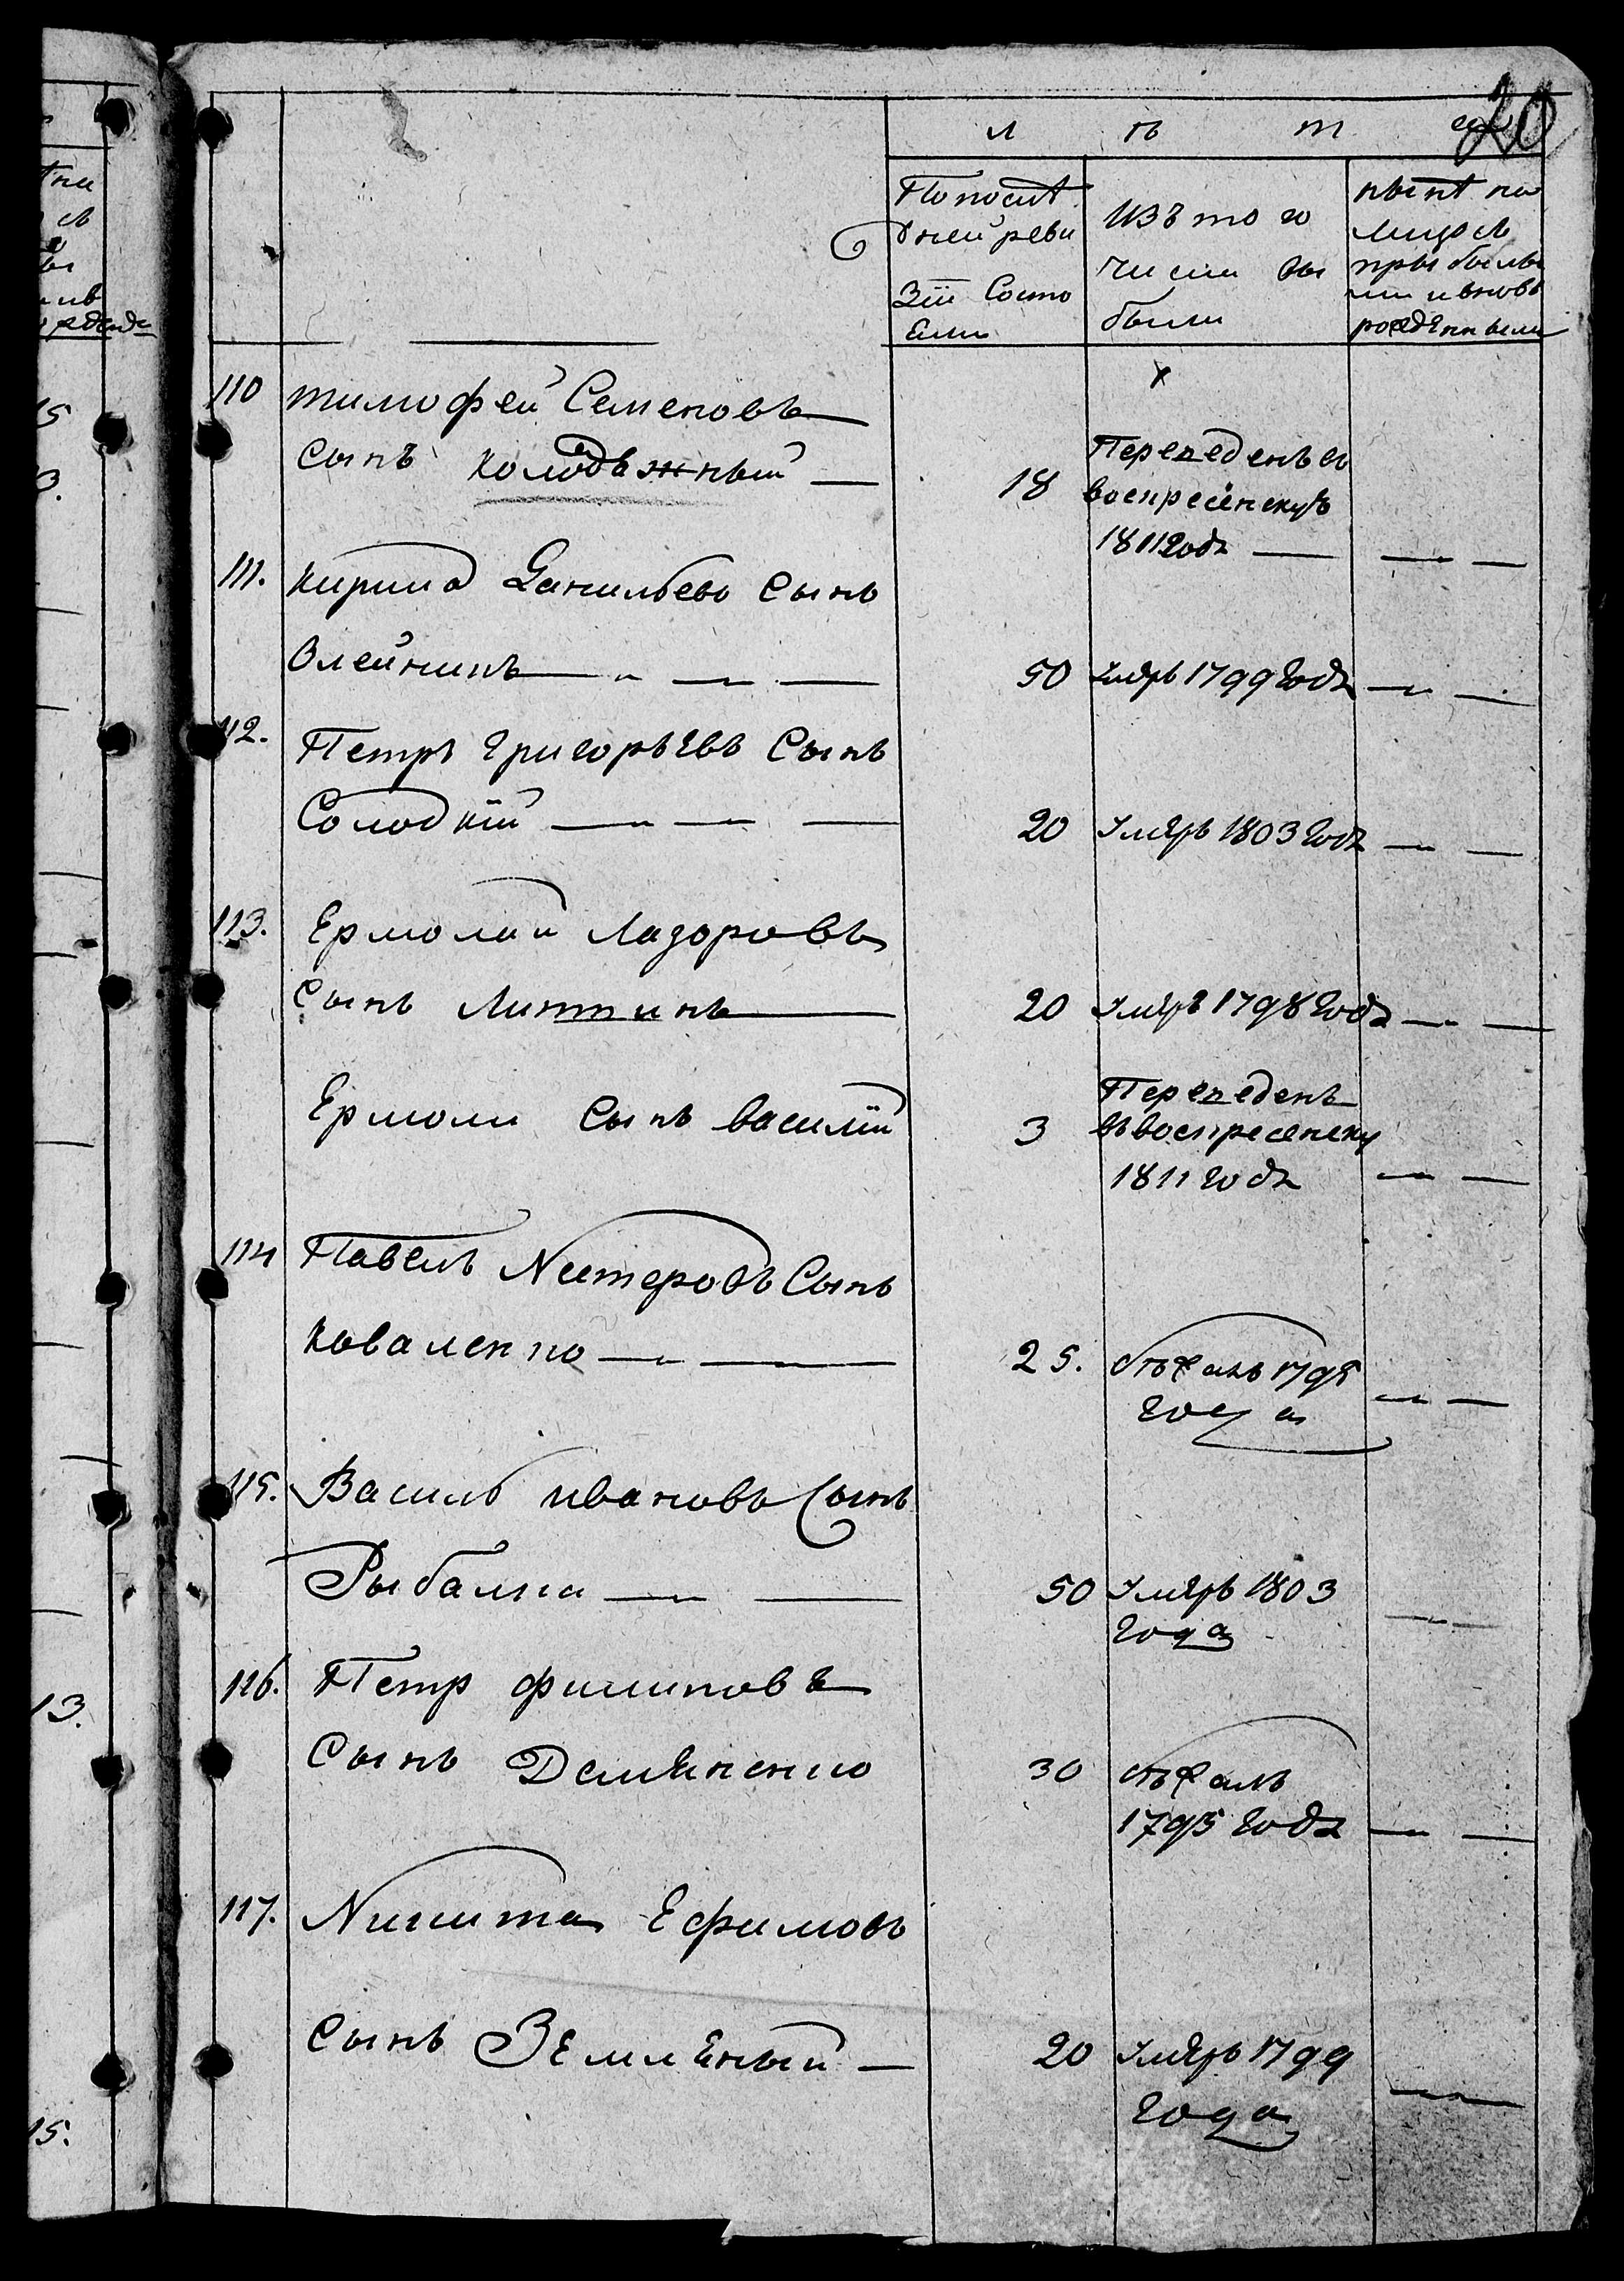 20
л ѣ т
По посл ѣ
дней реви
зіи состо
яли
изъ то го
числа вы
были
нынѣ на
лицо съ
прибылы
ми и вновь
рожденными
110 тимофей Семеновъ
сынъ колодѣжный
18
Переведенъ въ
воскресенскъ
1811 годъ
111. кирило Данильевъ сынъ
Олейникъ
50 умеръ 1799 годъ
112. Петръ григорьевъ сынъ
Солодкій
20 умеръ 1803 годъ
113. Ермолай Лазоровъ
сынъ Литвинъ
20 умеръ 1798 годъ
Ермоли сынъ василій
3
Переведенъ
въ воскресенску
1811 годъ
114 Павелъ Нестеровъ Сынъ
коваленко
25. бѣжалъ 1795
года
115. Василь ивановъ Сынъ
Рыбалка
50 умеръ 1803
года
116. Петр филиповъ
Сынъ Демяненко
30 бѣжалъ
1795 годъ
117. Никита Ефимовъ
сынъ Земляный
20 умеръ 1799
года
13.
15.